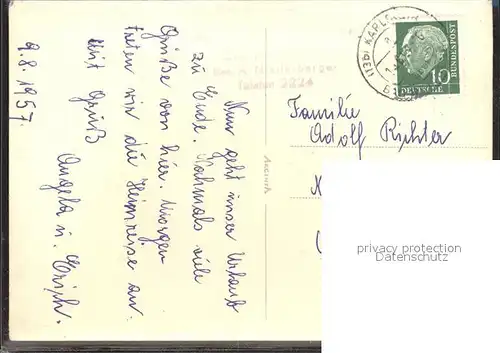 9.8.1957.
Nun geht unser Urlaub
zu Ende. Nochmals viele
Grüße von hier. Morgen
treten wir die Heimreise an.
Mit Gruß
Angela u. Erich.
Telefon 2224
(17b) KARLSRUHE
10
DEUTSCHE
BUNDESPOST
Familie
Adolf Richter
privacy protection
Datenschutz